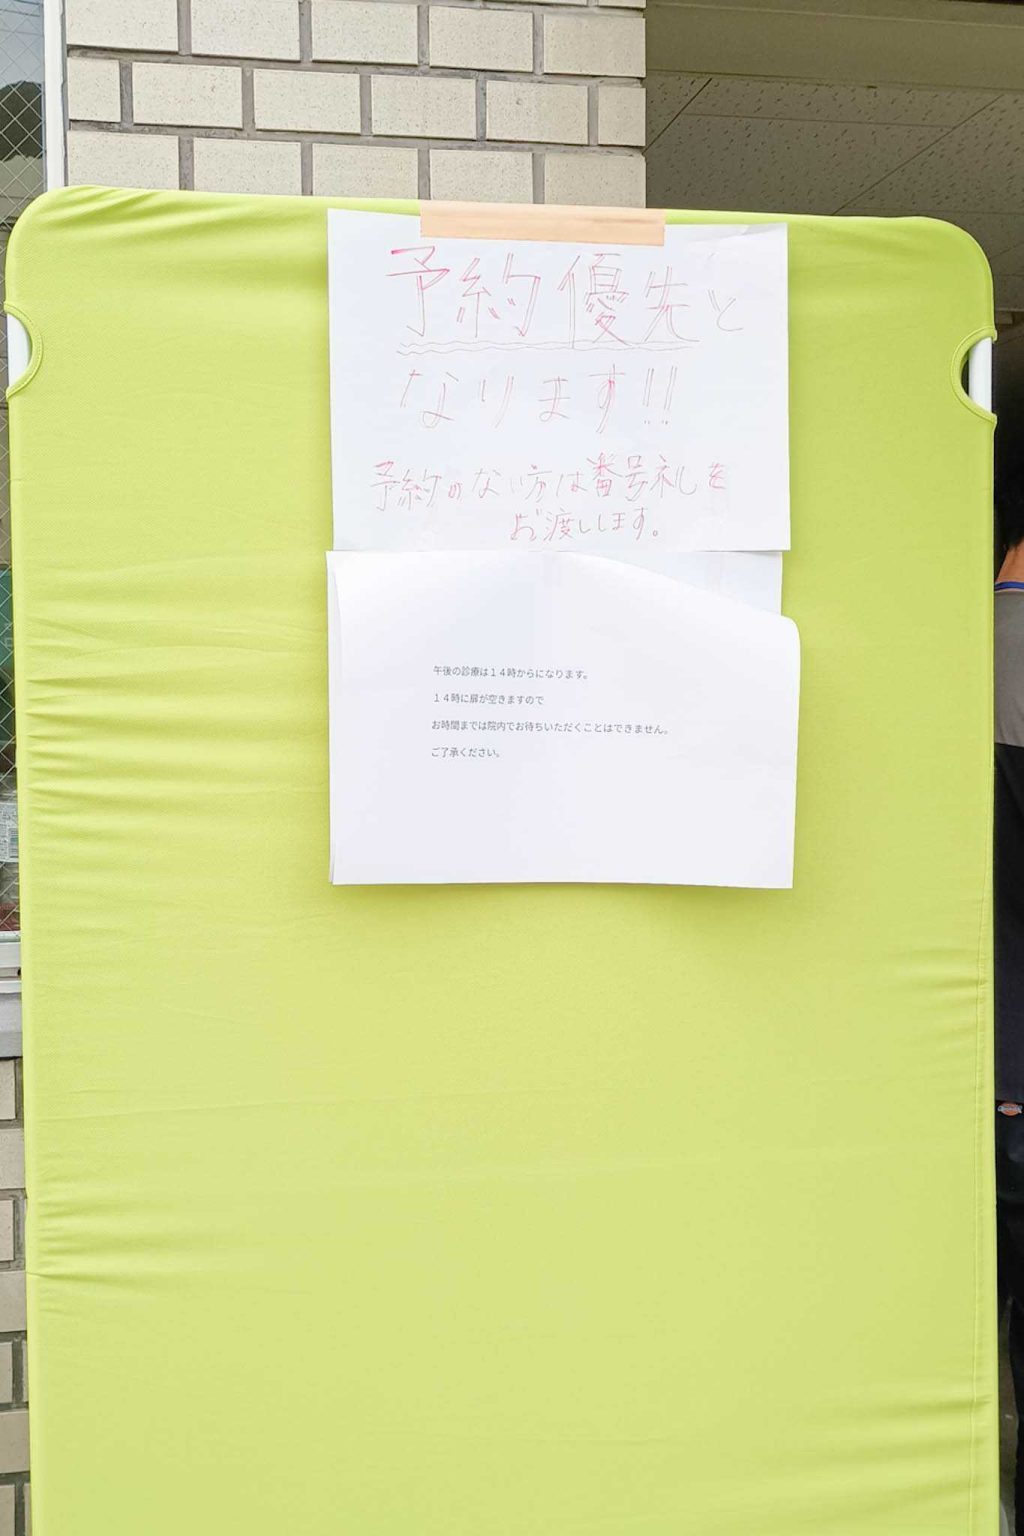 予約優先と
なります!!
予約のない方は番号札を
お渡しします。
午後の診療は１４時からになります。
１４時に扉が空きますので
お時間までは院内でお待ちいただくことはできません。
ご了承ください。